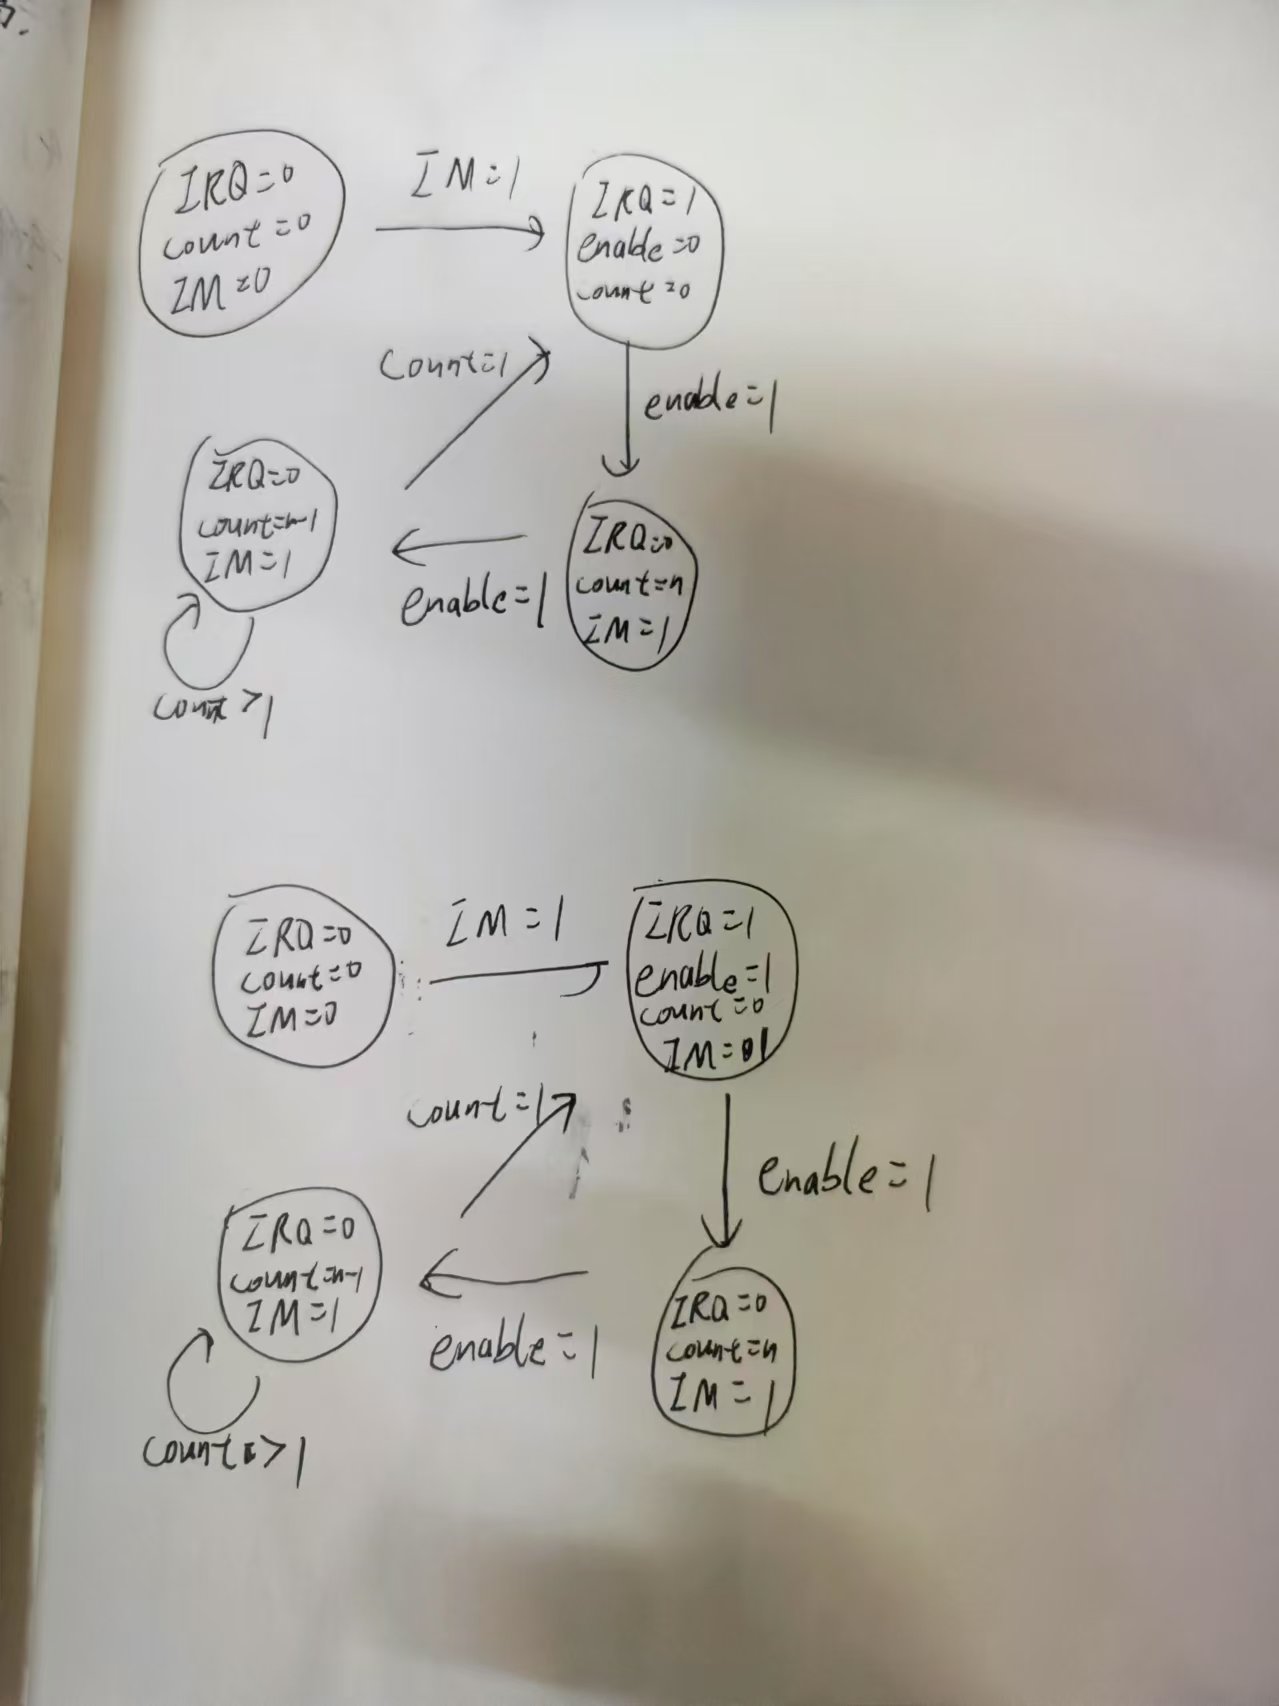 IRQ=0
count=0
IM=0
IM=1
IRQ=1
enable=0
count=0
count=1
enable=1
IRQ=0
count=n-1
IM=1
enable=1
IRQ=0
count=n
IM=1
count>1
IRQ=0
count=0
IM=0
IM=1
IRQ=1
enable=1
count=0
IM=01
count=1
enable=1
IRQ=0
count=n-1
IM=1
enable=1
IRQ=0
count=n
IM=1
count>1